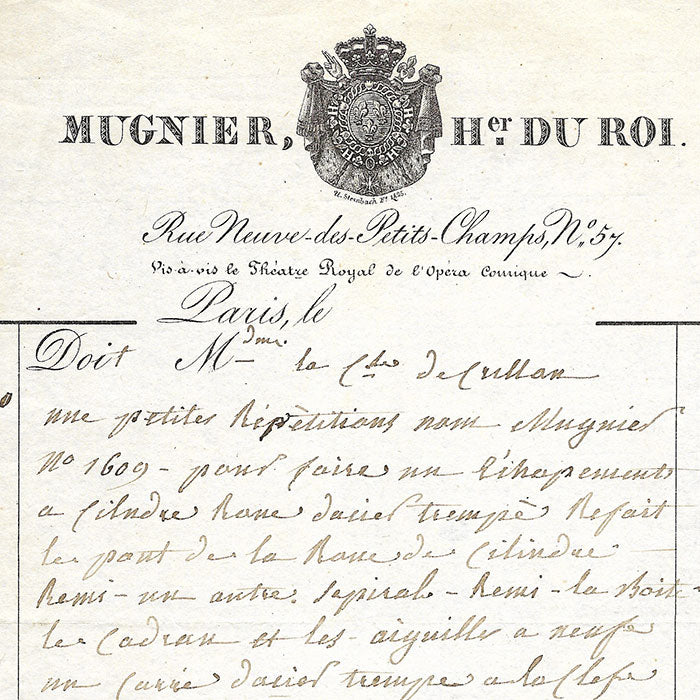 MUGNIER, Her. DU ROI.
Rue Neuve-des-Petits-Champs, No. 57.
Vis-à-vis le Théatre Royal de l'Opéra Comique
Paris, le
Doit Mdme. la Ctesse de Crillon
une petites Répètitions nom Mugnier
No 1609 - pour faire un Echapements
a Cilndre Roue dacier trempè Refait
le pont de la Roue de Cilindre
Remi - un autre Sepiral - Remi - la Boite
le Cadran et les aiguilles a neufe
un Carrè dacier trempe a la Clefe